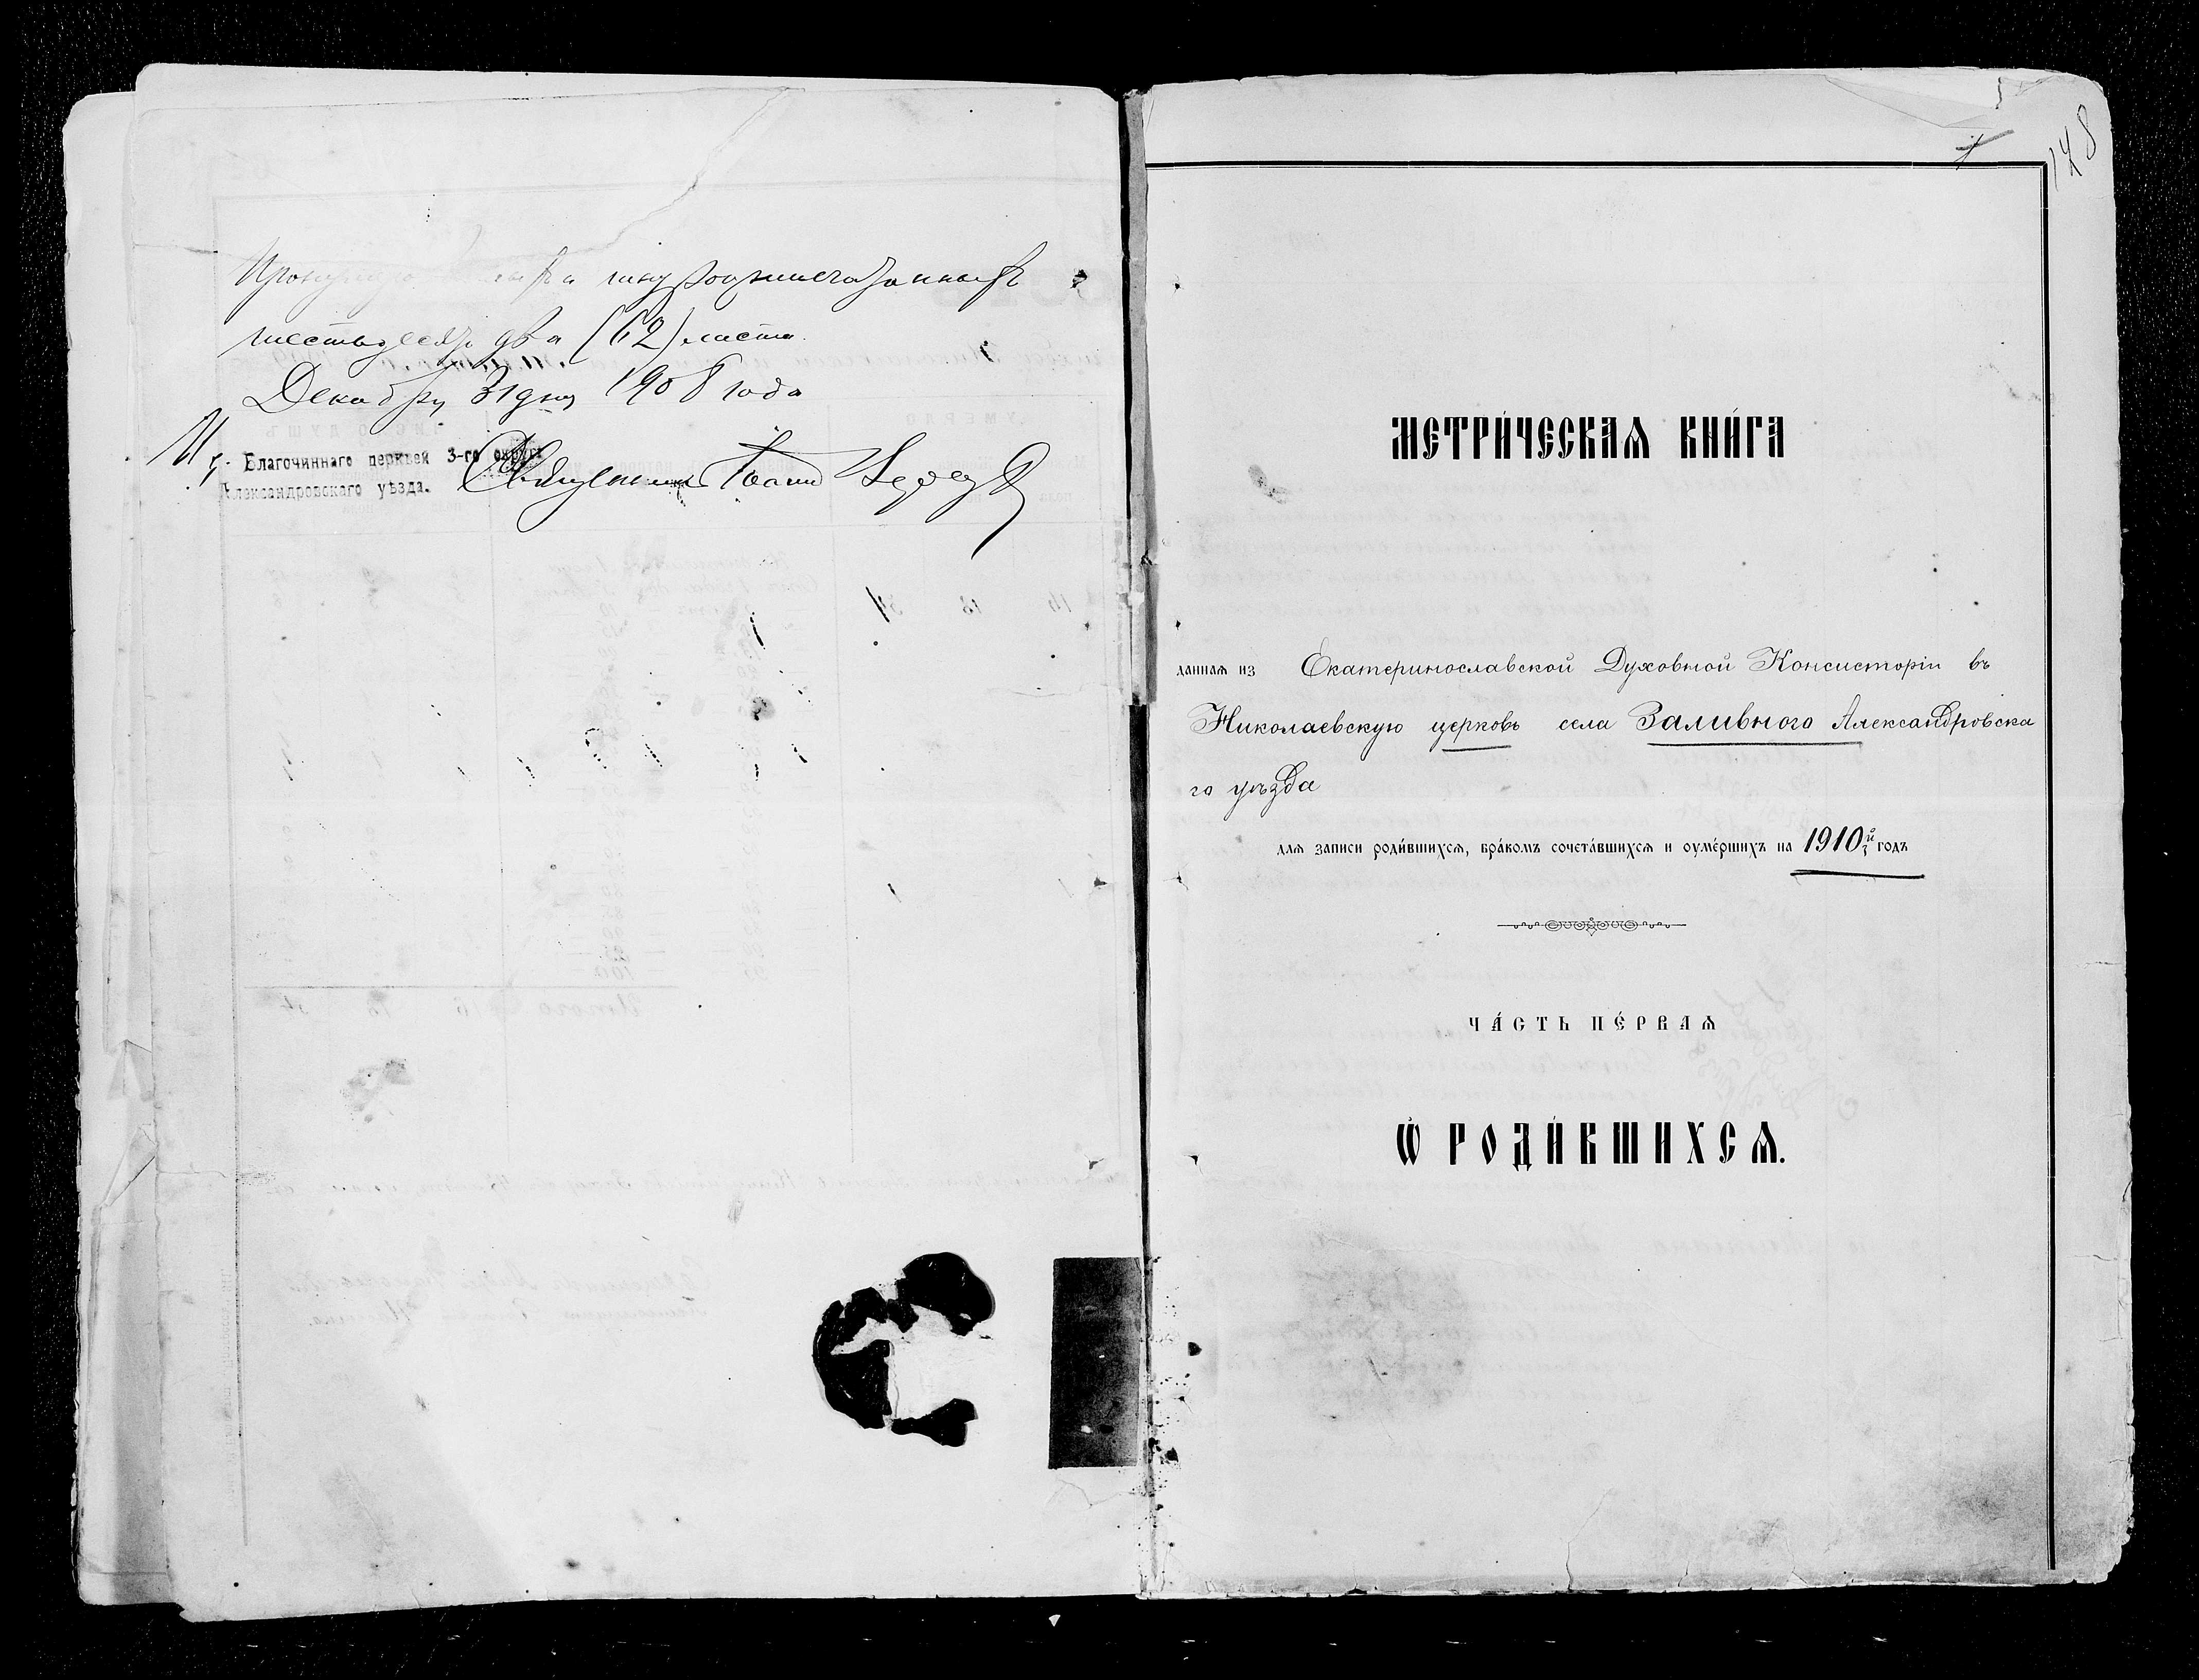 шнурозапечатанныхъ
шестьдесятъ два (62) листа
Декабря 31 дня 1908 года
И. д. Благочиннаго церквей 3-го округа
Александровскаго уѣзда. Священникъ Іоаннъ
148
МЕТРИ́ЧЕСКАѦ КНИ́ГА
даннаѧ из Екатеринославской Духовной Консисторіи въ
Николаевскую церковь села Заливного Александровска
го уѣзда
длѧ записи роди́вшихсѧ, бра́комъ сочета́вшихсѧ и оуме́ршихъ на 1910й годъ
ЧА́СТЬ ПЕ́РВАѦ
Ѡ҆ РОДИ́ВШИХСѦ.